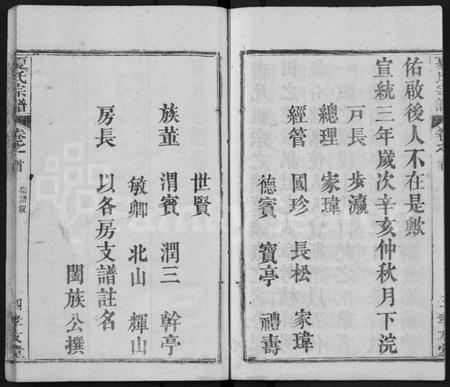 佑啟後人不在是歟
宣統三年歲次辛亥仲秋月下浣
戸長 步瀛
總理 家瑋
經管 國珍 長松 家瑋
德賓 寶亭 禮壽
世賢
族董 渭賓 潤三 幹亭
敏卿 北山 輝山
房長 以各房支譜註名
闔族公撰
夏氏宗譜 卷之首 四 孝友堂